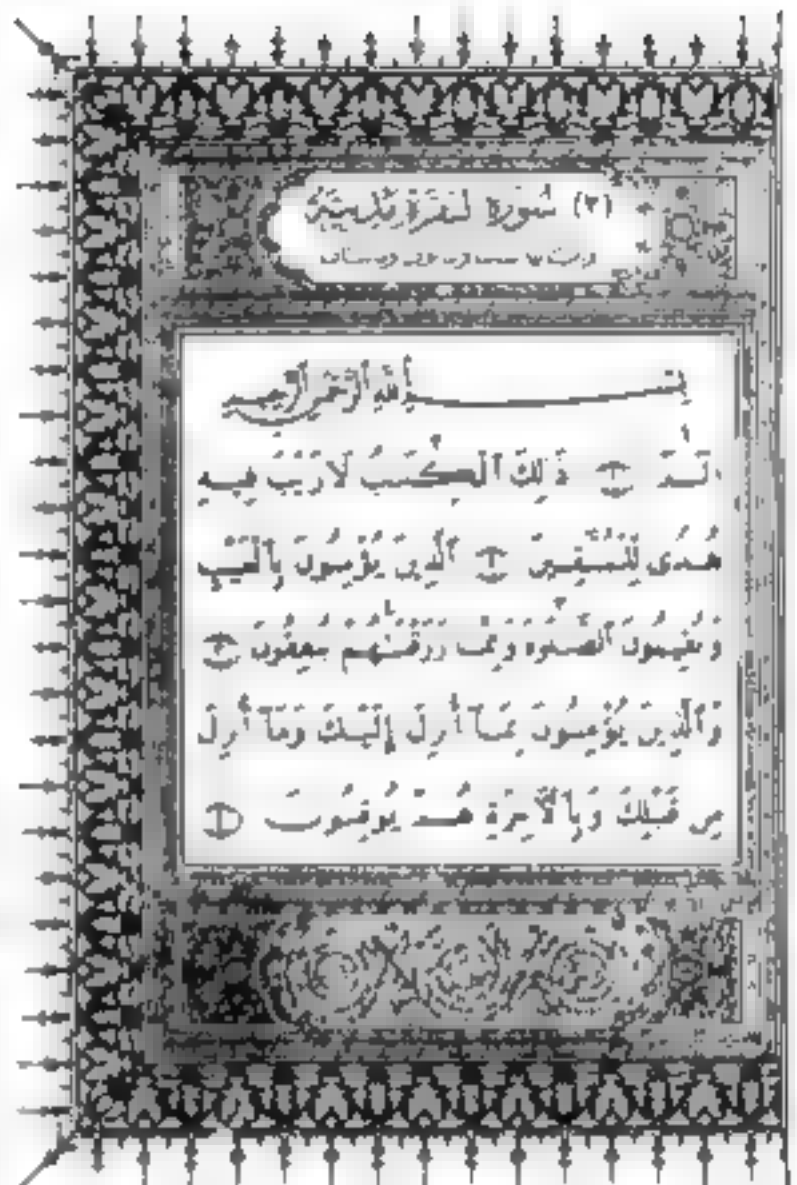 (٢) سُورَةُ الْبَقَرَةِ مَدَنِيَّةٌ
وآياتها ست وثمانون ومائتان
بِسْمِ ٱللَّهِ ٱلرَّحْمَٰنِ ٱلرَّحِيمِ
الٓمٓ ١ ذَٰلِكَ ٱلْكِتَٰبُ لَا رَيْبَ فِيهِ
هُدًى لِّلْمُتَّقِينَ ٢ ٱلَّذِينَ يُؤْمِنُونَ بِٱلْغَيْبِ
وَيُقِيمُونَ ٱلصَّلَوٰةَ وَمِمَّا رَزَقْنَٰهُمْ يُنفِقُونَ ٣
وَٱلَّذِينَ يُؤْمِنُونَ بِمَآ أُنزِلَ إِلَيْكَ وَمَآ أُنزِلَ
مِن قَبْلِكَ وَبِٱلْءَاخِرَةِ هُمْ يُوقِنُونَ ٤